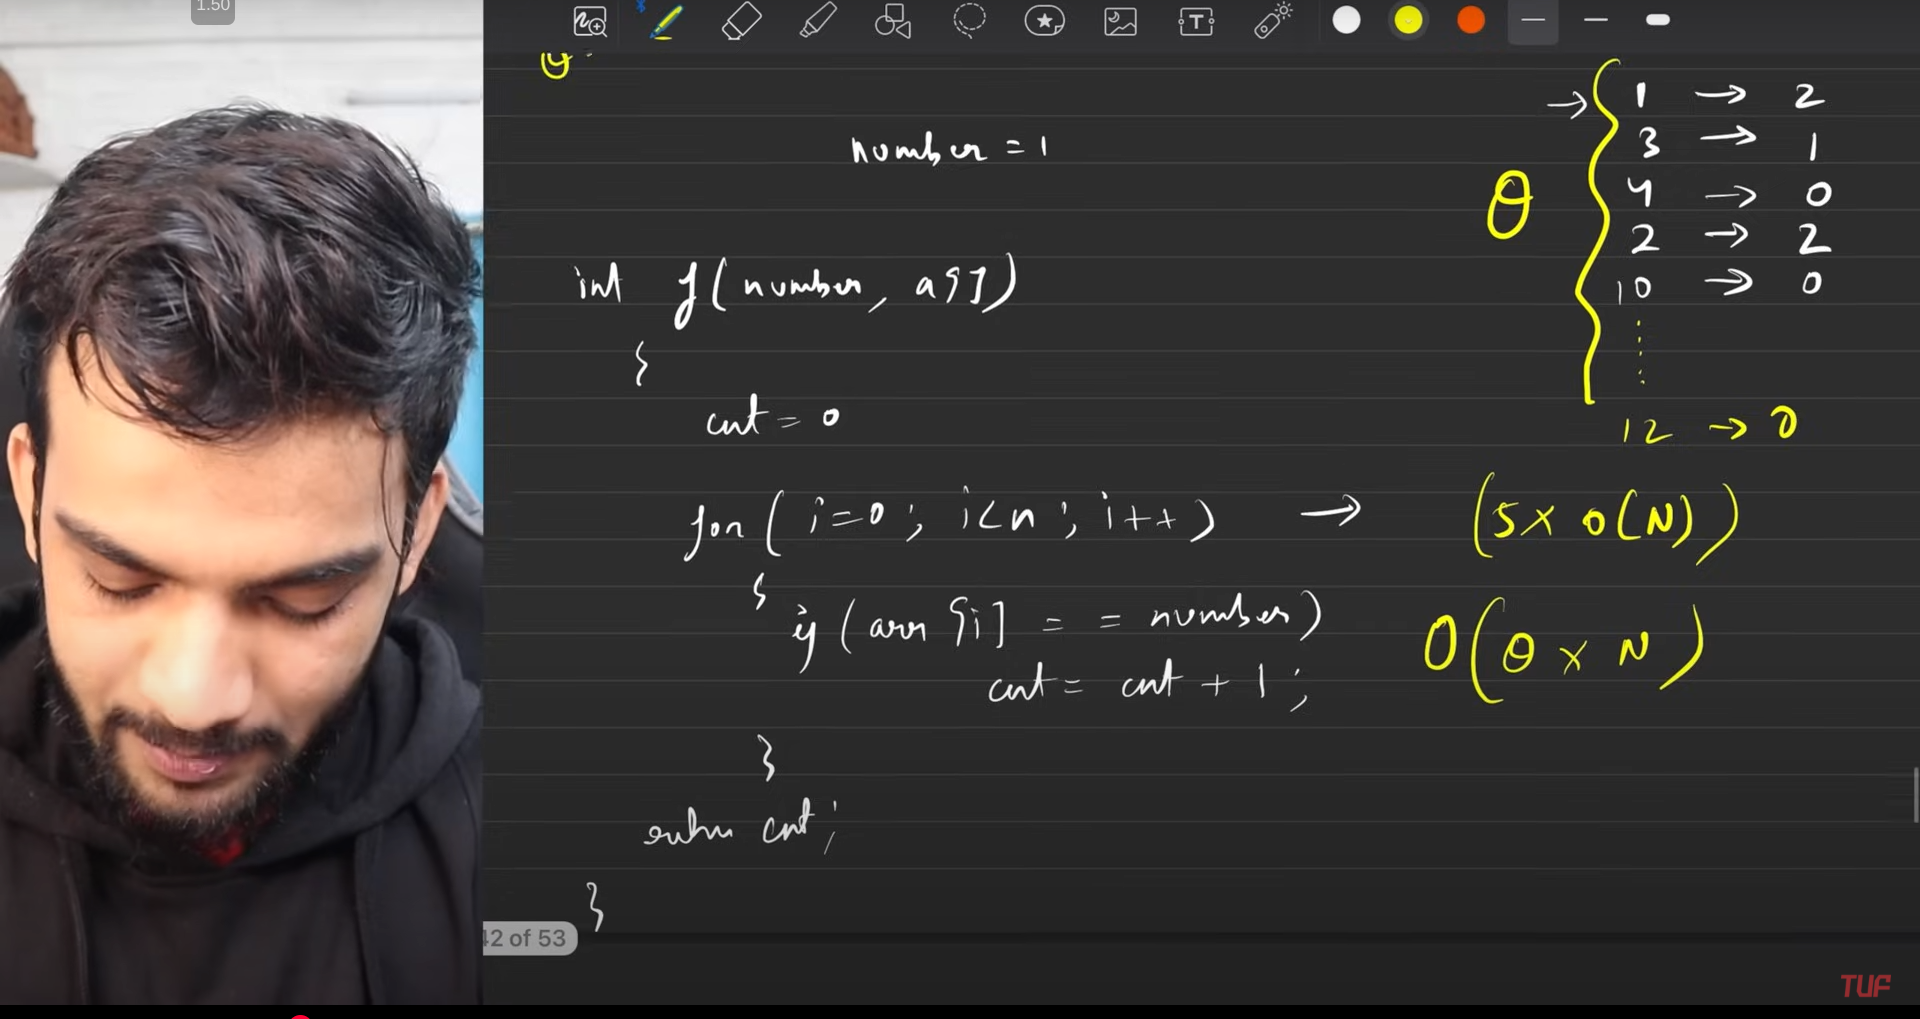 1.50
Q.
number = 1
int f(number, a[])
{
cnt = 0
for( i=0; i<n; i++)
{
if (arr[i] == number)
cnt = cnt + 1;
}
return cnt;
}
→ 1 → 2
3 → 1
4 → 0
2 → 2
10 → 0
12 → 0
Q
→ (5 × O(N))
O(Q × N)
42 of 53
TUF